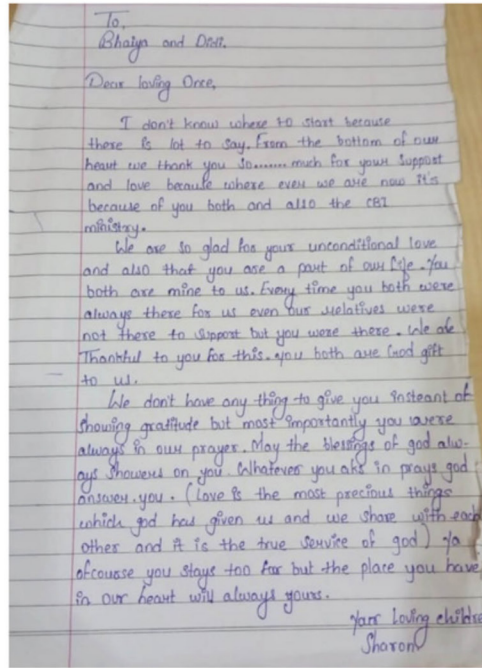 To,
Bhaiya and Didi.
Dear loving Once,
I don't know where to start because
there is lot to say. From the bottom of our
heart we thank you so....... much for your support
and love because where ever we are now it's
because of you both and also the CBI
ministry.
We are so glad for your unconditional love
and also that you are a part of our life. You
both are mine to us. Every time you both were
always there for us even our relatives were
not there to support but you were there. We are
Thankful to you for this. You both are God gift
to us.
We don't have any thing to give you insteant of
showing gratitude but most importantly you were
always in our prayer. May the blessings of god alw-
ays showers on you. Whatever you aks in prays god
answer you. (Love is the most precious things
which god has given us and we share with each
other and it is the true service of god) Ya
ofcourse you stays too far but the place you have
in our heart will always yours.
Your Loving childre
Sharon